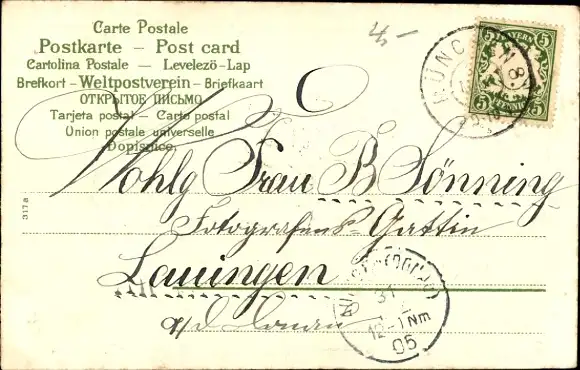 4,-
Carte Postale
Postkarte – Post card
Cartolina Postale – Levelezö-Lap
Brefkort - Weltpostverein - Briefkaart
ОТКРЫТОЕ ПИСЬМО
Tarjeta postal – Carto postal
Union postale universelle
Dopisnice.
5 BAYERN 5
5 5
MÜNCHEN 8.
Wohlg Frau B Sönning
Fotografens-Gattin
Lauingen
a/d Donau
31
12-1 Nm
05
317a